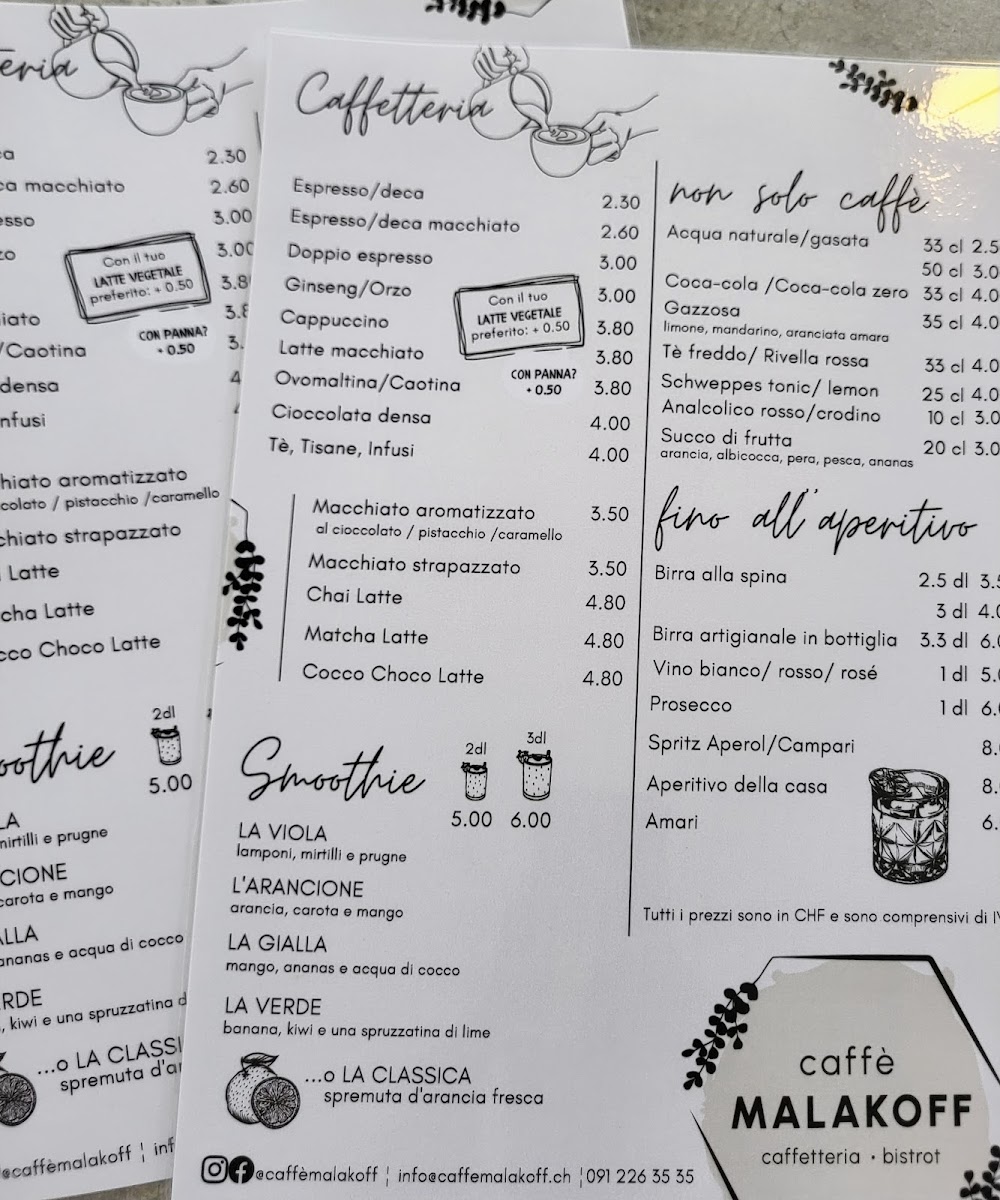 eria
a 2.30
ca macchiato 2.60
esso 3.00
zo 3.00
Con il tuo
LATTE VEGETALE
preferito: + 0.50
3.8
iato 3.8
CON PANNA?
+ 0.50
/Caotina 3.
densa 4
nfusi
hiato aromatizzato
colato / pistacchio /caramello
chiato strapazzato
Latte
cha Latte
cco Choco Latte
oothie
2dl
5.00
LA
mirtilli e prugne
CIONE
carota e mango
ALLA
ananas e acqua di cocco
RDE
, kiwi e una spruzzatina d
...o LA CLASSI
spremuta d'ar
@caffèmalakoff ¦ inf
Caffetteria
Espresso/deca 2.30
Espresso/deca macchiato 2.60
Doppio espresso 3.00
Ginseng/Orzo 3.00
Cappuccino 3.80
Latte macchiato 3.80
Ovomaltina/Caotina 3.80
Cioccolata densa 4.00
Tè, Tisane, Infusi 4.00
Con il tuo
LATTE VEGETALE
preferito: + 0.50
CON PANNA?
+ 0.50
Macchiato aromatizzato 3.50
al cioccolato / pistacchio /caramello
Macchiato strapazzato 3.50
Chai Latte 4.80
Matcha Latte 4.80
Cocco Choco Latte 4.80
Smoothie
2dl 3dl
5.00 6.00
LA VIOLA
lamponi, mirtilli e prugne
L'ARANCIONE
arancia, carota e mango
LA GIALLA
mango, ananas e acqua di cocco
LA VERDE
banana, kiwi e una spruzzatina di lime
...o LA CLASSICA
spremuta d'arancia fresca
@caffèmalakoff ¦ info@caffemalakoff.ch ¦ 091 226 35 35
non solo caffè
Acqua naturale/gasata 33 cl 2.5
50 cl 3.0
Coca-cola /Coca-cola zero 33 cl 4.0
Gazzosa 35 cl 4.0
limone, mandarino, aranciata amara
Tè freddo/ Rivella rossa 33 cl 4.0
Schweppes tonic/ lemon 25 cl 4.0
Analcolico rosso/crodino 10 cl 3.0
Succo di frutta 20 cl 3.0
arancia, albicocca, pera, pesca, ananas
fino all'aperitivo
Birra alla spina 2.5 dl 3.5
3 dl 4.0
Birra artigianale in bottiglia 3.3 dl 6.0
Vino bianco/ rosso/ rosé 1 dl 5.0
Prosecco 1 dl 6.0
Spritz Aperol/Campari 8.
Aperitivo della casa 8.
Amari 6.
Tutti i prezzi sono in CHF e sono comprensivi di IV
caffè
MALAKOFF
caffetteria • bistrot